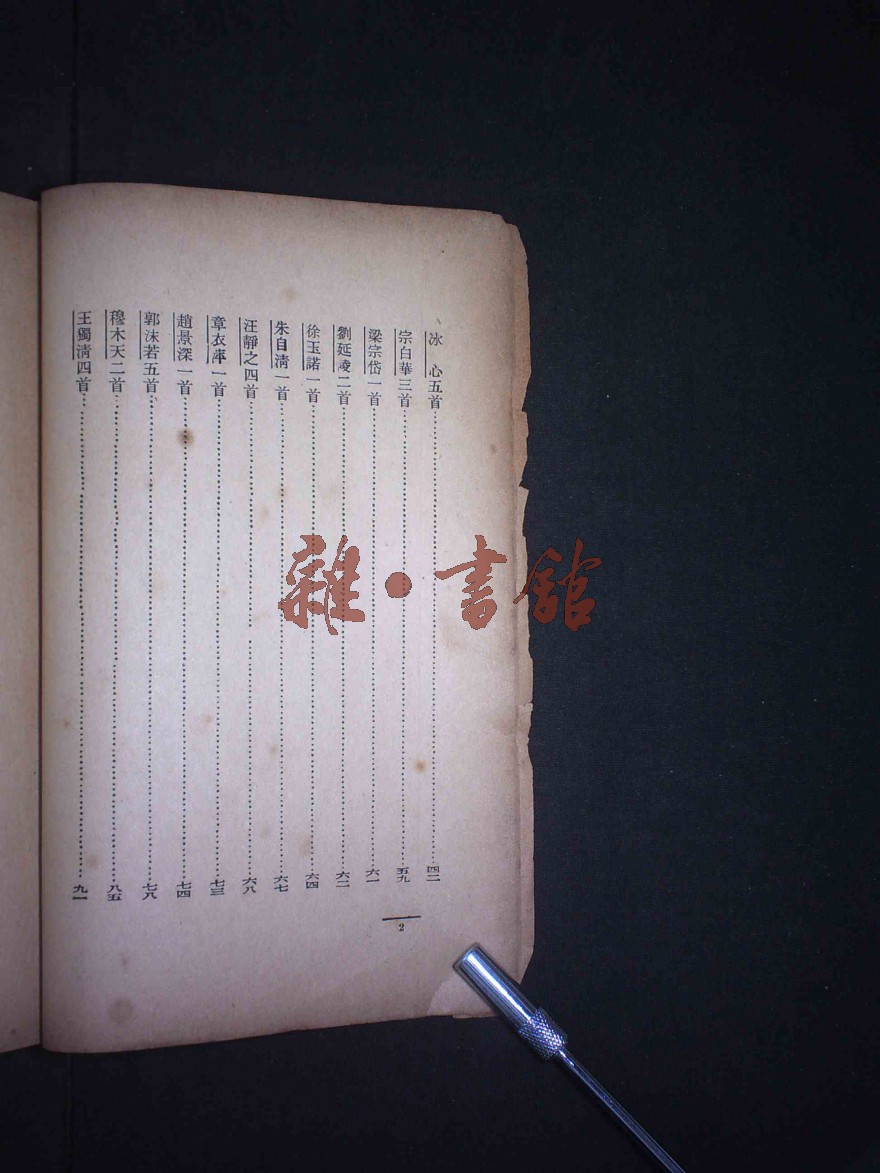 冰　心五首……四二
宗白華三首……五九
梁宗岱一首……六一
劉延凌二首……六二
徐玉諾一首……六四
朱自清一首……六七
汪靜之四首……六八
章衣萍一首……七三
趙景深一首……七四
郭沫若五首……七八
穆木天二首……八五
王獨清四首……九一
2
雜·書館